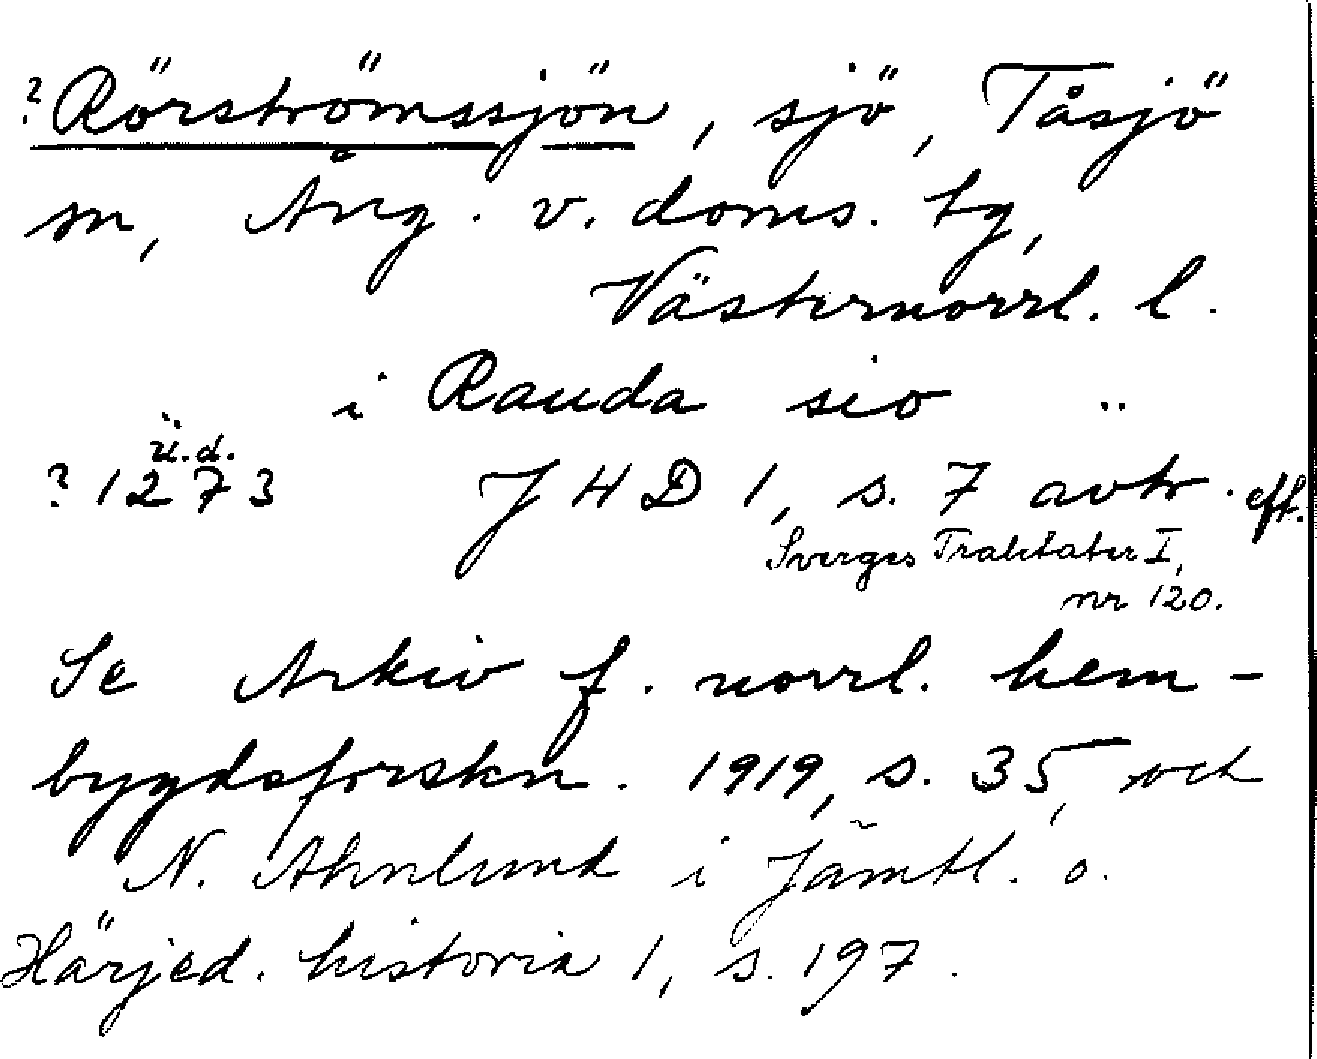 ? Rörströmssjön, sjö, Tåsjö
sn, Ång. v. doms. tg,
Västernorrl. l.
i Rauda sio ..
u.d.
? 1273 JHD 1, s. 7 avtr. eft.
Sverges Traktater I,
nr 120.
Se Arkiv f. norrl. hem-
bygdsforskn. 1919, s. 35, och
N. Ahnlund i Jämtl. o.
Härjed. historia 1, s. 197.